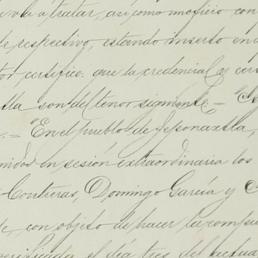 va á tratar, así como moficio con
de respectivo, estando inserto en
tor certifico: que la credencial
son del tenor siguiente = 
= "En el pueblo de
en sesión extraordinaria los
Contreras, Domingo García y C
con objeto de hacer la
el día tres del actua